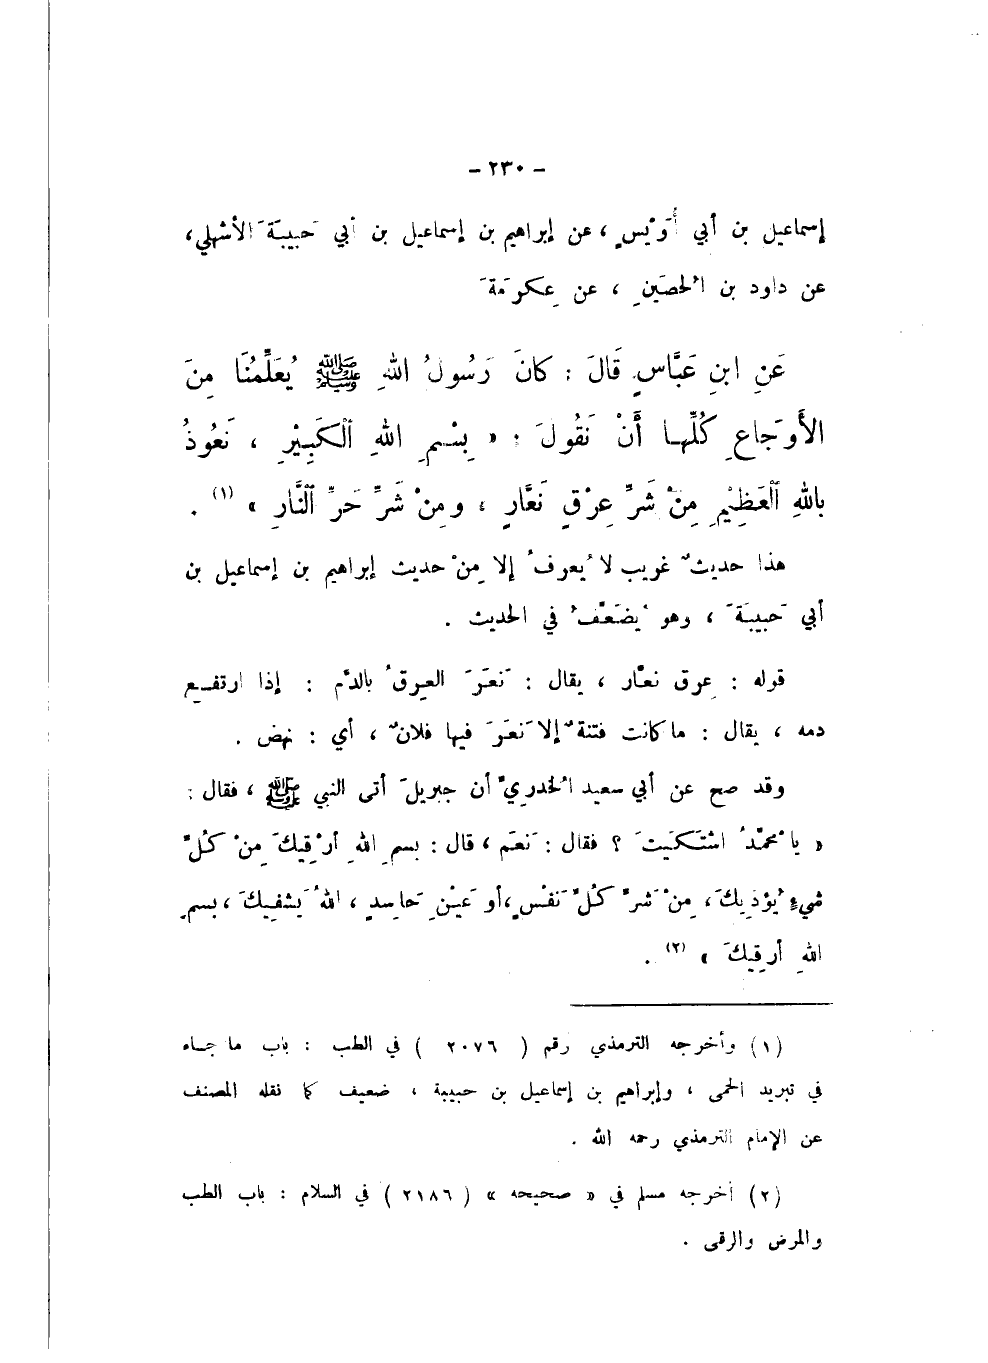 - ٢٣٠ -
إسماعيل بن أبي أُوَيْسٍ ، عن إبراهيم بن إسماعيل بن أبي حَبيبَةَ الأشهلي ،
عن داود بن الحُصَينِ ، عن عِكرمَةَ
عَنِ ابنِ عَبَّاسٍ قَالَ : كانَ رَسُولُ اللهِ ﷺ يُعَلِّمُنَا مِنَ
الأَوجَاعِ كُلِّها أَنْ نَقُولَ : « بِسْمِ اللهِ الْكَبِيْرِ ، نَعُوذُ
باللهِ الْعَظِيْمِ مِنْ شَرِّ عِرْقٍ نَعَّارٍ ، ومِنْ شَرِّ حَرِّ النَّارِ » (١) .
هذا حديثٌ غريب لا يُعرفُ إلا مِنْ حديث إبراهيم بن إسماعيل بن
أبي حَبيبَةَ ، وهو يُضَعَّفُ في الحديث .
قوله : عِرق نعّار ، يقال : نَعَرَ العِرقُ بالدَّم : إذا ارتفع
دمه ، يقال : ما كانت فتنةٌ إلا نَعَرَ فيها فلانٌ ، أي : نهض .
وقد صح عن أبي سعيد الخُدريِّ أن جبريلَ أتى النبي ﷺ ، فقال :
« يا مُحمَّدُ اشتَكَيتَ ؟ فقال : نَعَم ، قال : بسمِ اللهِ أرْقِيكَ مِنْ كُلِّ
شيءٍ يُؤذِيكَ ، مِنْ شرِّ كُلِّ نَفْسٍ ، أو عَيْنِ حَاسِدٍ ، اللهُ يَشفِيكَ ، بسمِ
اللهِ أرقِيكَ » (٢) .
(١) وأخرجه الترمذي رقم ( ٢٠٧٦ ) في الطب : باب ما جاء
في تبريد الحمى ، وإبراهيم بن إسماعيل بن حبيبة ، ضعيف كما نقله المصنف
عن الإمام الترمذي رحمه الله .
(٢) أخرجه مسلم في « صحيحه » ( ٢١٨٦ ) في السلام : باب الطب
والمرض والرقى .